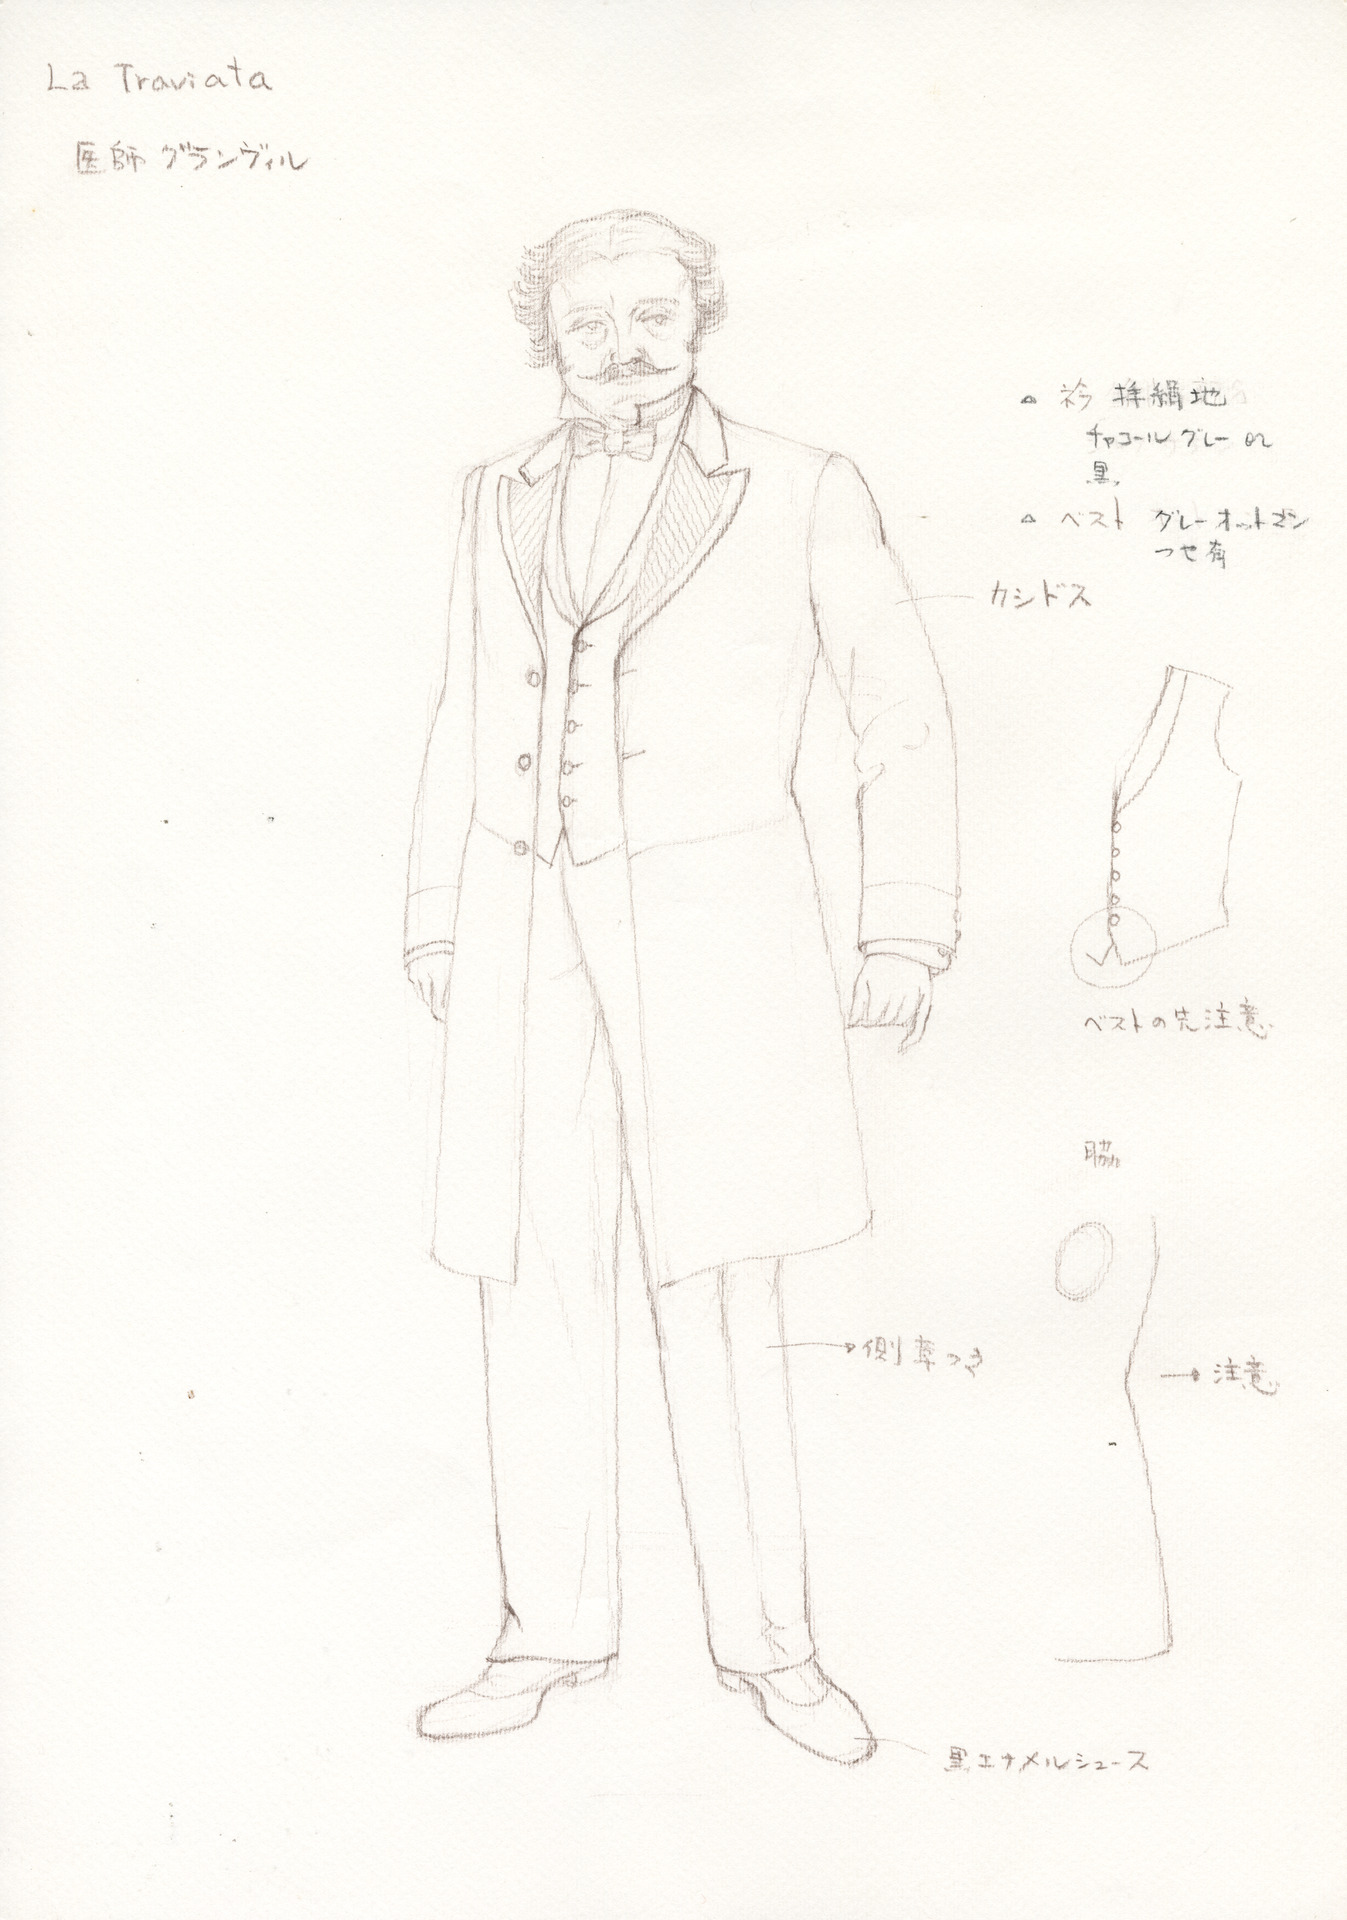 La Traviata
医師 グランヴィル
衿 拝絹地
チャコールグレー or
黒
ベスト グレーオットマン
つや有
カシドス
ベストの先注意
脇
注意
側章つき
黒エナメルシューズ